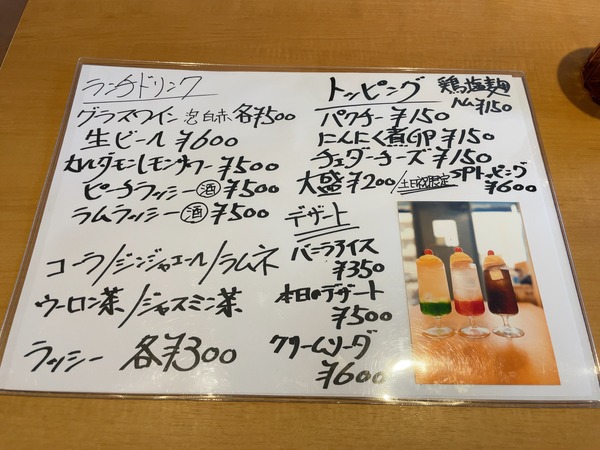 ランチドリンク
グラスワイン 泡白赤 各¥500
生ビール ¥600
カルダモンレモンサワー ¥500
ピーチラッシー 酒 ¥500
ラムラッシー 酒 ¥500
コーラ/ジンジャエール/ラムネ
ウーロン茶/ジャスミン茶
ラッシー 各¥300
トッピング
鶏塩麹
ハム¥150
パクチー ¥150
にんにく煮GP ¥150
チェダーチーズ ¥150
大盛 ¥200/土日夜限定 SPトッピング
¥600
デザート
バニラアイス
¥350
本日のデザート
¥500
クリームソーダ
¥600